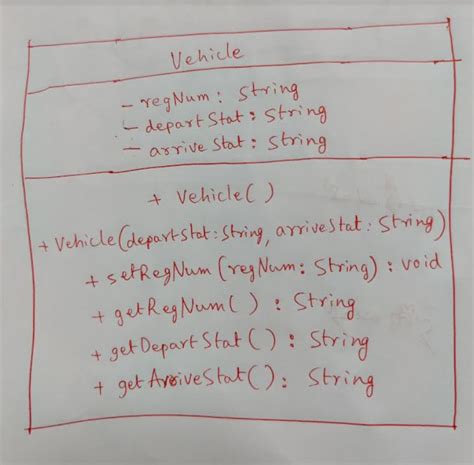 Vehicle
- regNum: String
- departStat: String
- arriveStat: String
+ Vehicle()
+ Vehicle(departStat: String, arriveStat: String)
+ setRegNum(regNum: String): void
+ getRegNum(): String
+ getDepartStat(): String
+ getArriveStat(): String